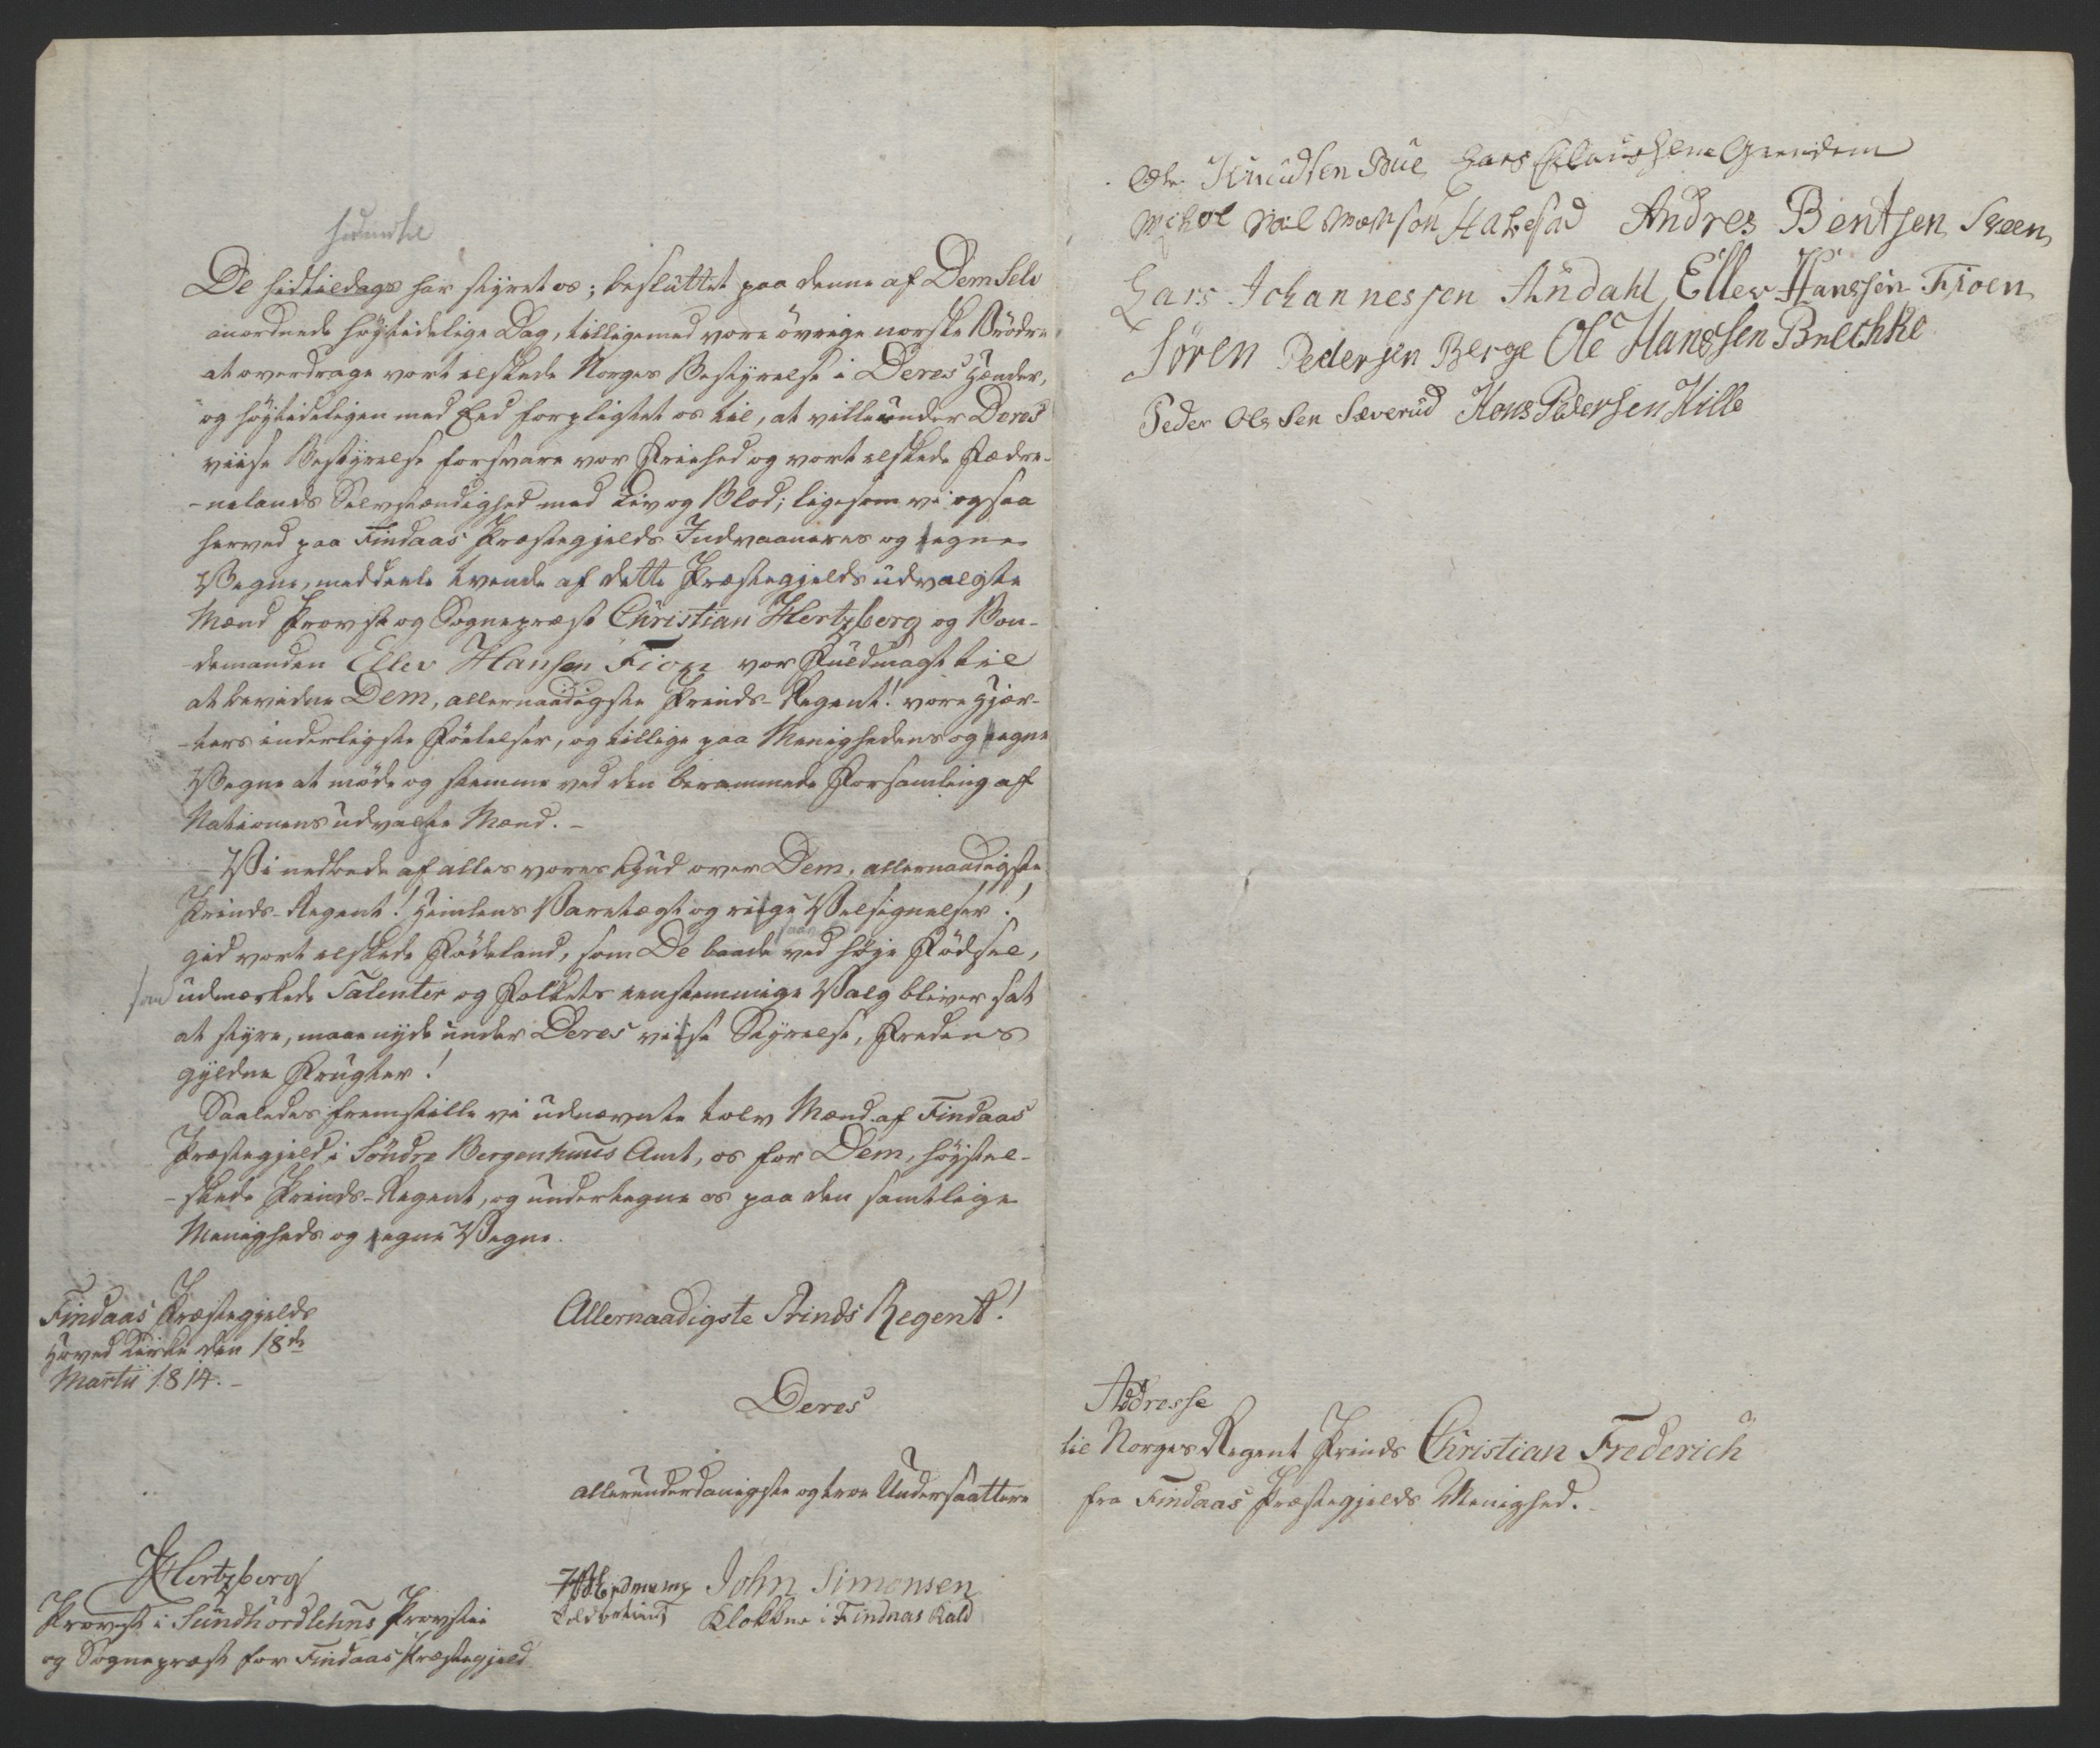 hidindtil
De hidtildags har styret os; besluttet paa denne af Dem Selv
anordnede höytidelige Dag, tilligemed vore övrige norske Brödre
at overdrage vort elskede Norges Bestyrelse i Deres Hænder,
og höytideligen med Eed forpligtet os til, at ville under Deres
viise Bestyrelse forsvare vor Frihed og vort elskede Fædre-
-nelands Selvstændighed med Liv og Blod; ligesom vi ogsaa
herved paa Findaas Præstegjelds Indvaaneres og egne
Vegne, meddeele tvende af dette Præstegjelds udvalgte
Mænd Provst og Sognepræst Christian Hertzberg og Bon-
-demanden Ellev Hansen Fioen vor Fuldmagt til
at bevidne Dem, allernaadigste Prinds-Regent! vore Hjer-
-ters inderligste Fölelser, og tillige paa Menighedens og egne
Vegne at möde og stemme ved den berammede Forsamling af
Nationens udvalgte Mænd. -
Vi nedbede af alles vores Gud over Dem, allernaadigste
Prinds-Regent! Himlens Varetægt og riige Velsignelser!
gid vort elskede Födeland, som De baade ved höje Födsel,
udmærkede Talenter og Folkets eenstemmige Valg bliver sat
at styre, maae nyde under Deres viise Styrelse, Fredens
gyldne Frugter!
Saaledes fremstille vi udnævnte tolv Mænd af Findaas
Præstegjeld i Söndre Bergenhuus Amt, os for Dem, höystel-
-skede Prinds-Regent, og undertegne os paa den samtlige
Menigheds og egne Vegne.
Findaas Præstegjelds
Hoved Kirke den 18de
Martii 1814. -
Allernaadigste Prinds Regent!
Deres
allerunderdanigste og troe Undersaattere
Hertzberg
Provst i Sundhordlehns Provstie
og Sognepræst for Findaas Præstegjeld
John Simonsen
Klokker i Findaas Kald
Ole Knudsen Bue Lars Clausen
Andres Bentsen
Lars Johannessen Andahl Ellev Hanssen Fioen
Sören Pedersen Berge Ole Hanssen
Peder Olssen Sæverud Hans Pedersen Hille
Addresse
til Norges Regent Prinds Christian Frederich
fra Findaas Præstegjelds Menighed.